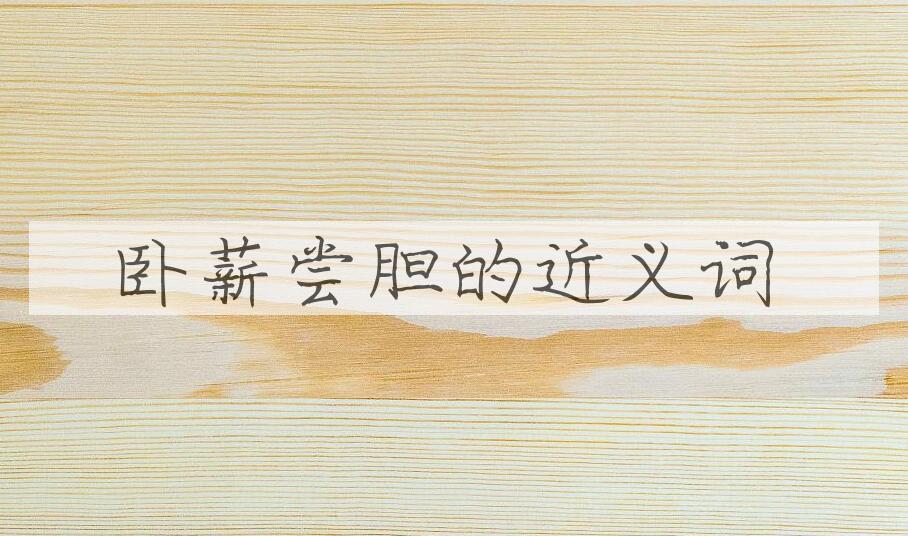 卧薪尝胆的近义词